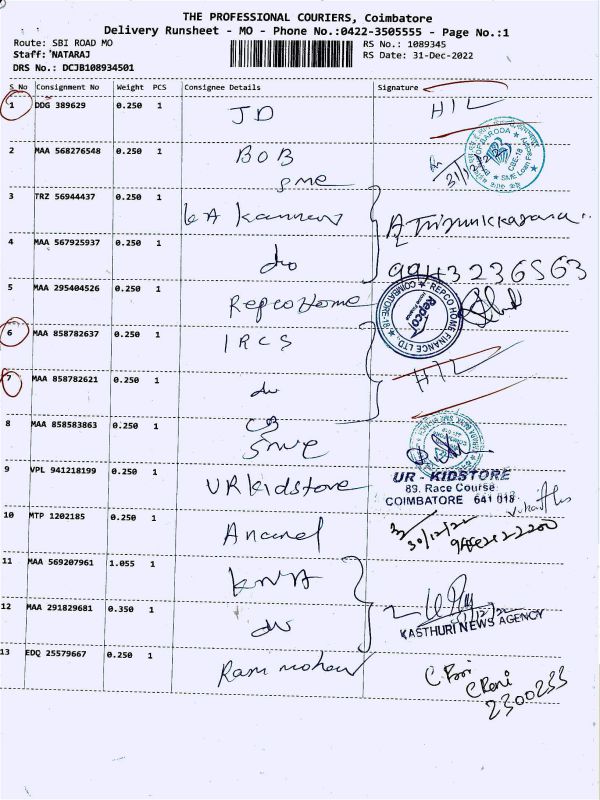 THE PROFESSIONAL COURIERS, Coimbatore
Delivery Runsheet - MO - Phone No.:0422-3505555 - Page No.:1
Route: SBI ROAD MO
RS No.: 1089345
Staff: NATARAJ
RS Date: 31-Dec-2022
DRS No.: DCJB108934501
S No Consignment No Weight PCS Consignee Details Signature
1 DDG 389629 0.250 1 JD HTL
2 MAA 568276548 0.250 1 BOB
sme 31/12/22
BANK OF BARODA
CBE-18
SME Loan Factory
3 TRZ 56944437 0.250 1 KA
4 MAA 567925937 0.250 1 do 9943236563
5 MAA 295404526 0.250 1 Repco Home
REPCO HOME FINANCE LTD.
COIMBATORE-18
Repco
6 MAA 858782637 0.250 1 IRCS
7 MAA 858782621 0.250 1 do HTL
8 MAA 858583863 0.250 1 CB
sme
9 VPL 941218199 0.250 1 UR kidstore
UR - KIDSTORE
89. Race Course
COIMBATORE 641 018
10 MTP 1202185 0.250 1 Anand 30/12/22
11 MAA 569207961 1.055 1 KNA
12 MAA 291829681 0.350 1 do
KASTHURI NEWS AGENCY
13 EDQ 25579667 0.250 1 Ram mohan
2300233